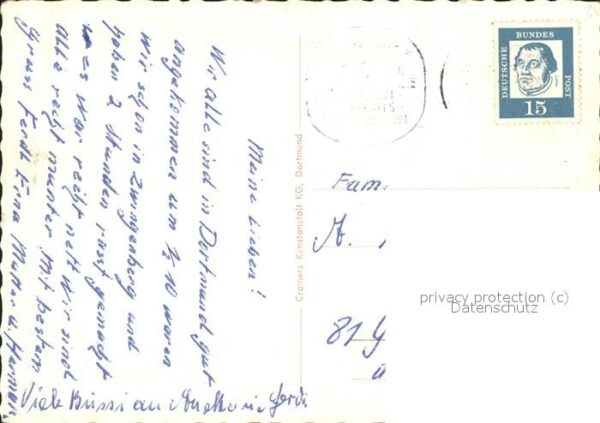 Meine Lieben!
Wir alle sind in Dortmund gut
angekommen um ½ 10 waren
wir schon in Zwingenberg und
haben 2 Stunden rast gemacht
es war recht nett wir sind
alle recht munter Mit bestem
Gruss Ferdi Erna Mutter u. Herman
Viele Bussi an
Cramers Kunstanstalt KG, Dortmund
DEUTSCHE BUNDES POST
15
Fam.
A.
81
privacy protection (c)
Datenschutz